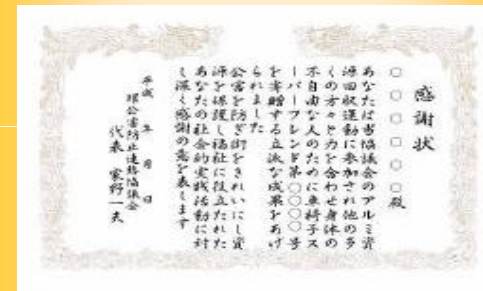 感謝状
○○○○○○殿
あなたは当協議会のアルミ資
源回収運動に参加され他の多
くの方々と力を合わせ身体の
不自由な人のために車椅子ス
ーパーフレンド第○○○号
を寄贈する立派な成果をあげ
られました
公害を防ぎ街をきれいにし資
源を保護し福祉に役立たれた
あなたの社会的実践活動に対
し深く感謝の意を表します
平成 年 月 日
環公害防止連絡協議会
代表 家野一夫